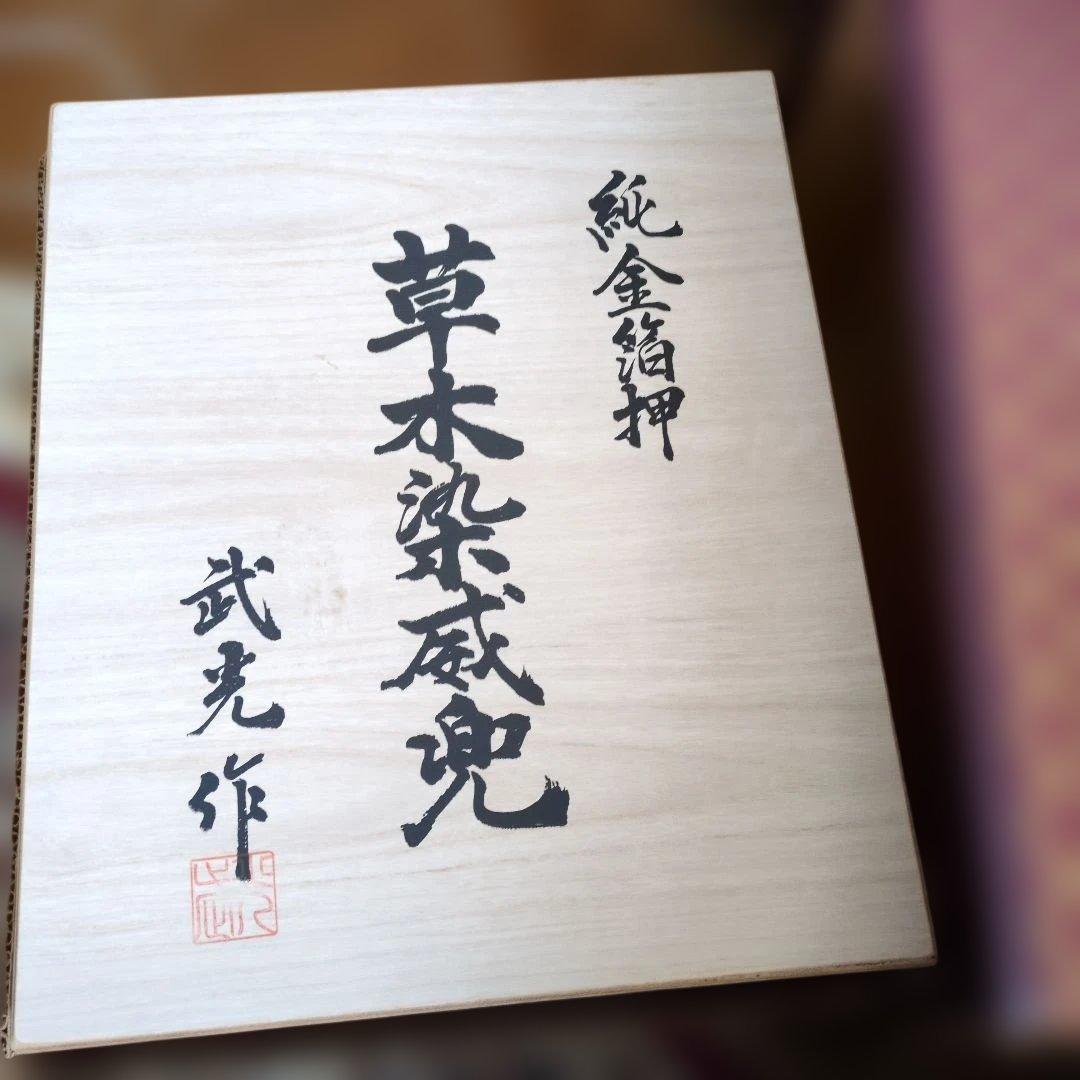 純金箔押
草木染威兜
武光作